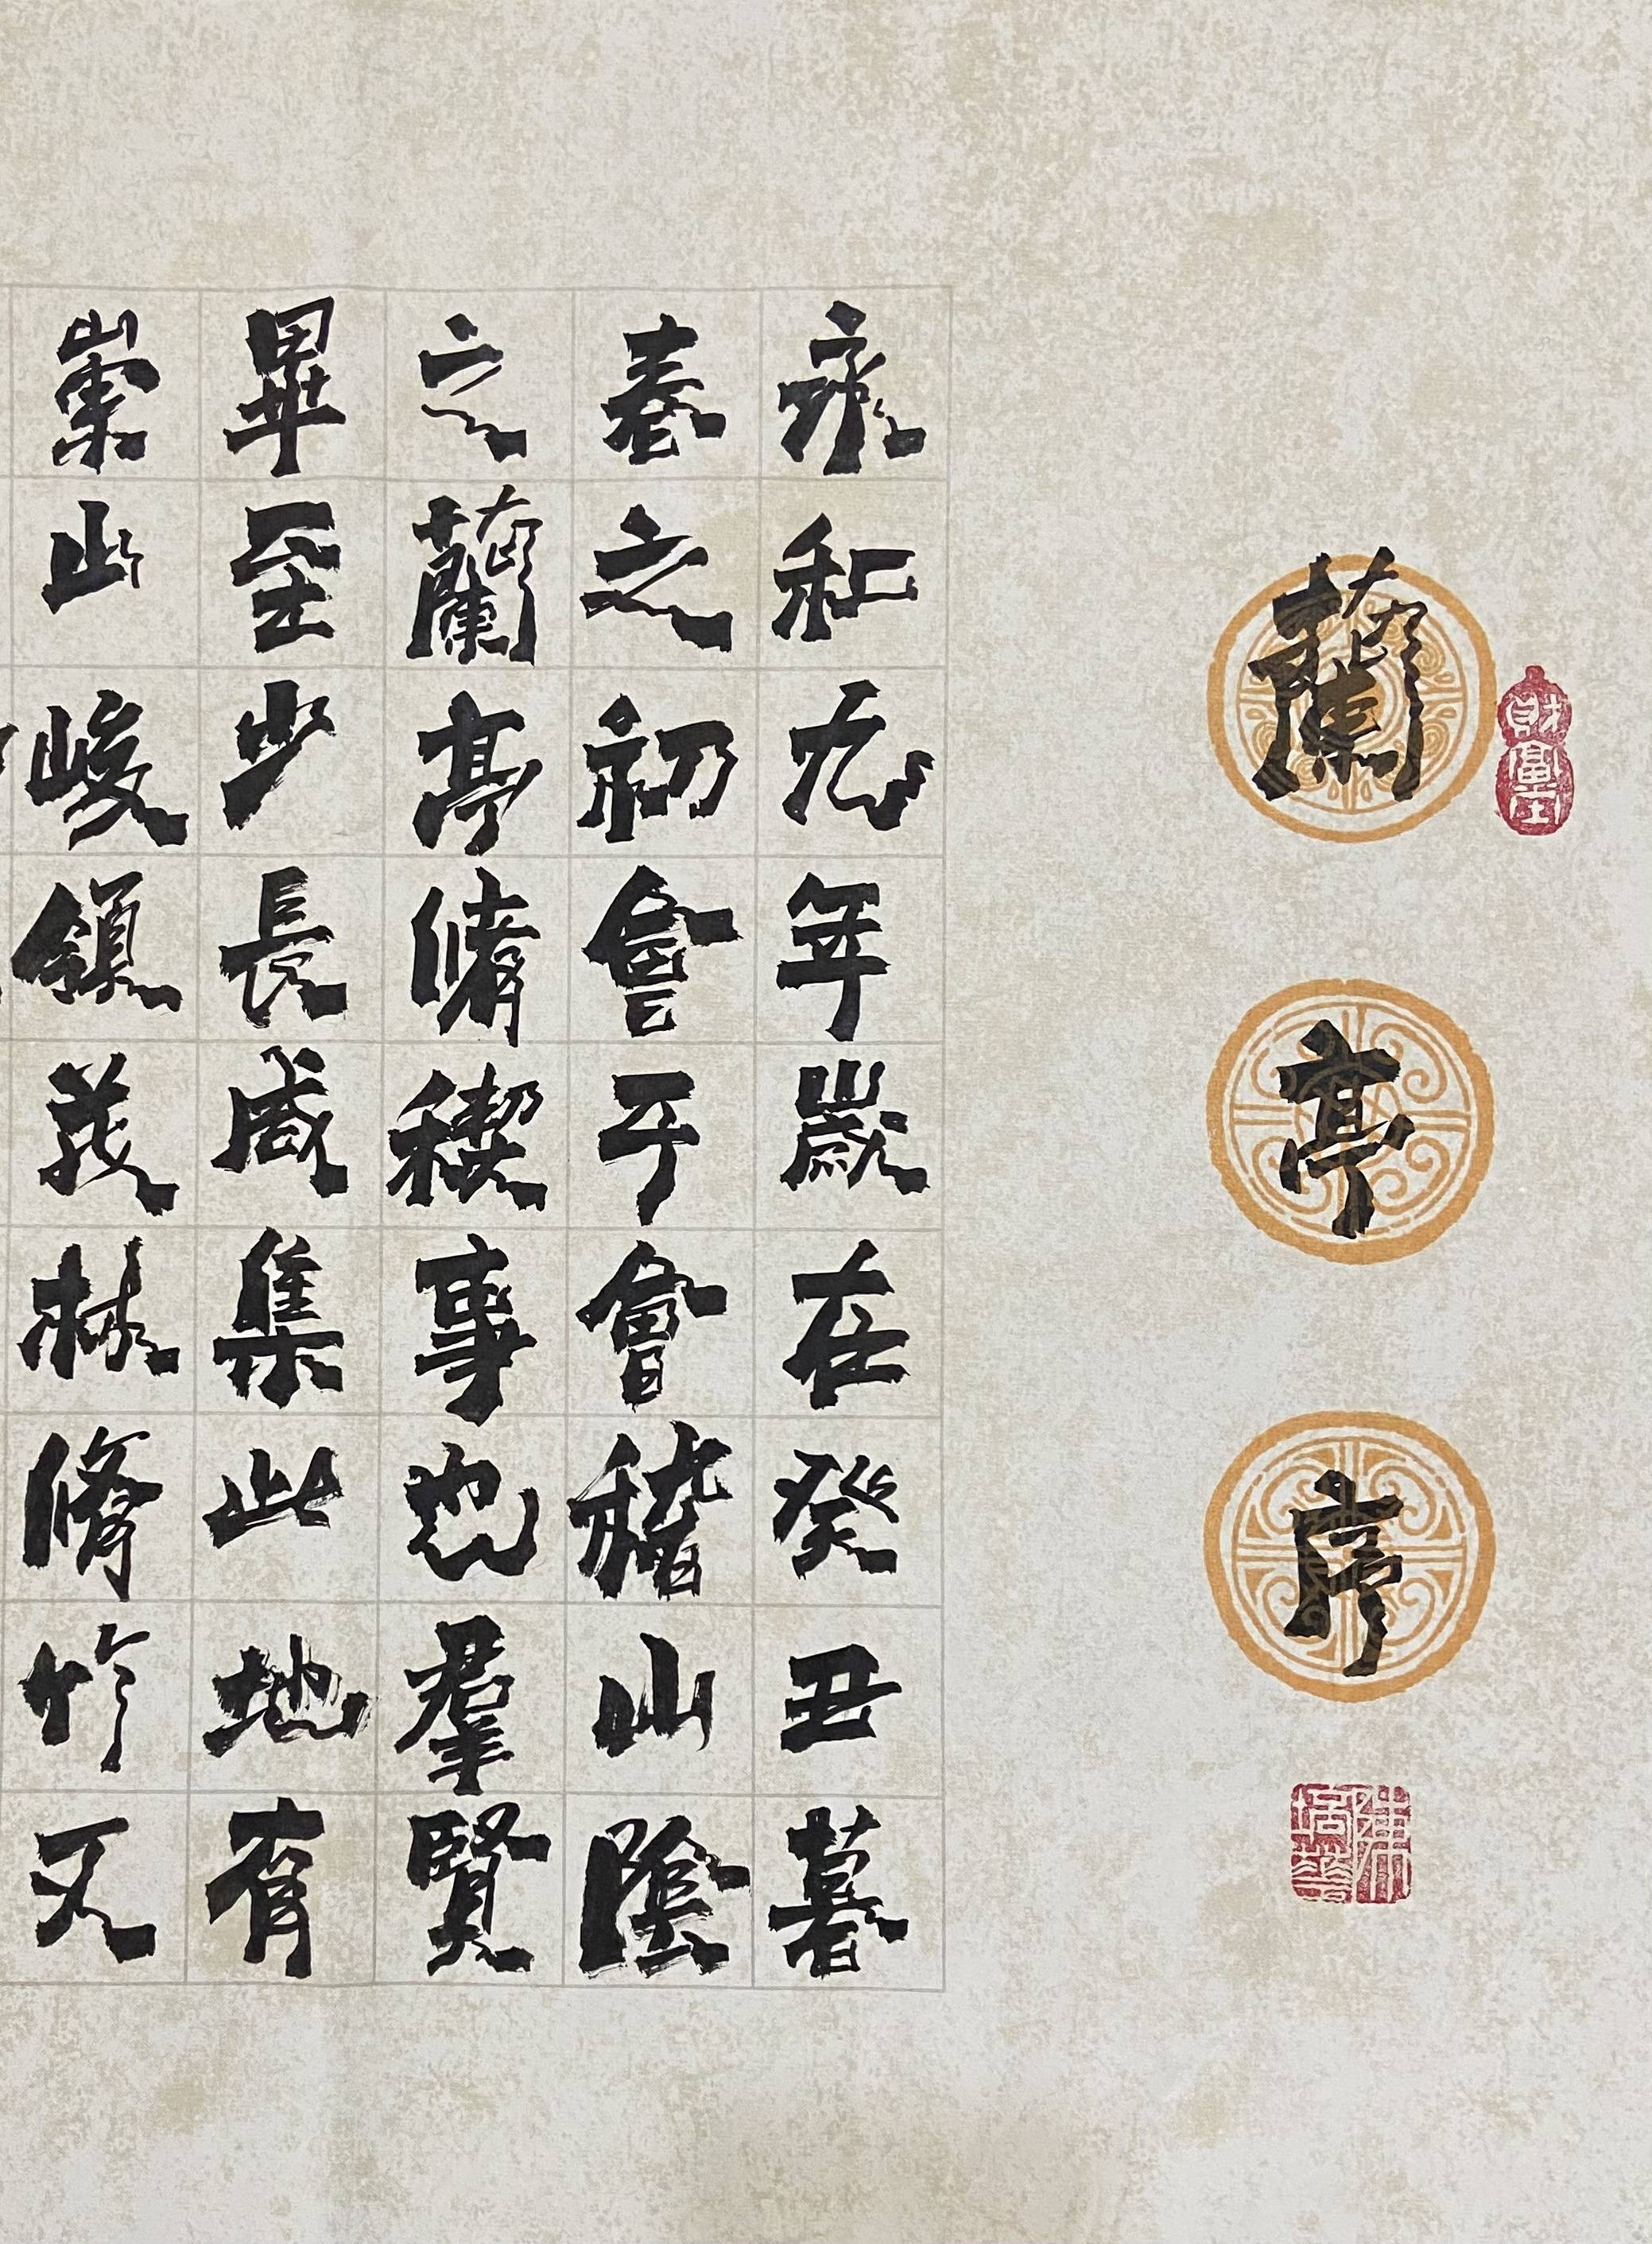 蘭亭序
永和九年歲在癸丑暮
春之初會于會稽山陰
之蘭亭脩稧事也羣賢
畢至少長咸集此地有
崇山峻領茂林脩竹又